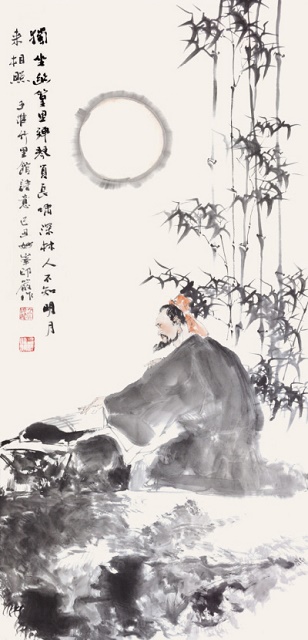 獨坐幽篁里彈琴复長嘯深林人不知明月
来相照 王維竹里館詩意 己丑